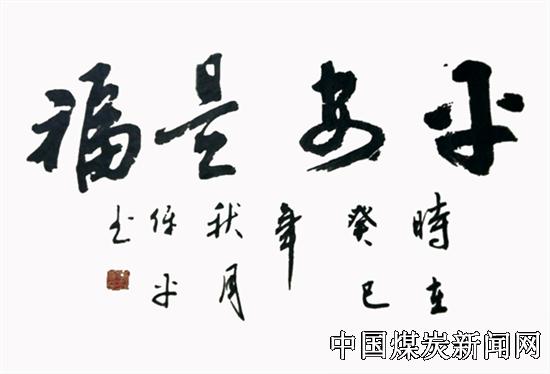 平安是福
時在
癸巳
年
秋周
保平
书
中国煤炭新闻网